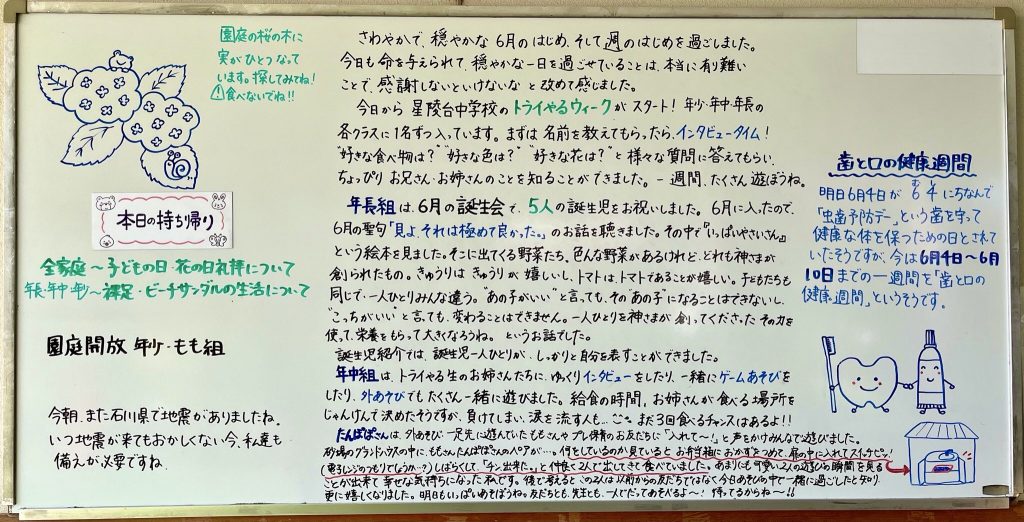 園庭の桜の木に
実がひとつなって
います。探してみてね!
⚠食べないでね!!
本日の持ち帰り
全家庭～子どもの日・花の日礼拝について
年長・年中・年少～裸足・ビーチサンダルの生活について
園庭開放 年少・もも組
今朝、また石川県で地震がありましたね。
いつ地震が来てもおかしくない今、私達も
備えが必要ですね。
さわやかで、穏やかな6月のはじめ、そして週のはじめを過ごしました。
今日も命を与えられて、穏やかな一日を過ごせていることは、本当に有り難い
ことで、感謝しないといけないな と改めて感じました。
今日から 星陵台中学校のトライやるウィークがスタート! 年少・年中・年長の
各クラスに1名ずつ入っています。まずは 名前を教えてもらったら、インタビュータイム!
“好きな食べ物は?”“好きな色は?”“好きな花は?”と様々な質問に答えてもらい、
ちょっぴり お兄さん・お姉さんのことを知ることができました。一週間、たくさん遊ぼうね。
年長組は、6月の誕生会で、5人の誕生児をお祝いしました。6月に入ったので、
6月の聖句「見よ、それは極めて良かった。」のお話を聴きました。その中で『いっぱいやさいさん』
という絵本を見ました。そこに出てくる野菜たち、色んな野菜があるけれど、どれも神さまが
創られたもの。きゅうりは きゅうりが嬉しいし、トマトは、トマトであることが嬉しい。子どもたちも
同じで、一人ひとりみんな違う。“あの子がいい”と言っても、その“あの子”になることはできないし、
“こっちがいい”と言ても、変わることはできません。一人ひとりを神さまが創ってくださった その力を
使って、栄養をもらって大きくなろうね。というお話でした。
誕生児紹介では、誕生児一人ひとりが、しっかりと自分を表すことができました。
年中組は、トライやる生のお姉さんたちに、ゆっくりインタビューをしたり、一緒にゲームあそびを
したり、外あそびでもたくさん一緒に遊びました。給食の時間、お姉さんが食べる場所を
じゃんけんで決めたそうですが、負けてしまい、涙を流す人も… まだ3回食べるチャンスはあるよ!!
たんぽぽさんは、外あそび、一足先に遊んでいたももさんやプレ保育のお友だちに「入れて～!」と声をかけみんなで遊びました。
砂場のグランドハウスの中に、ももさんたんぽぽさんのペアが…。何をしているのか見ているとお弁当箱におかずをつめて、扉の中に入れてスイッチピッ!
(電子レンジのつもりでしょうか…?)しばらくして、「チン出来た。」と仲良く2人で出してきて食べていました。あまりにも可愛い2人の遊びの瞬間を見る
ことが出来て 幸せな気持ちになった私です。後で考えると この2人は以前からの友だちではなく今日あそびの中で一緒に過ごしたと知り、
更に嬉しくなりました。明日もいっぱいあそぼうね。友だちとも、先生とも、一人でだってあそべるよ～! 待ってるからね～!!
歯と口の健康週間
む し
明日6月4日が 6 4 にちなんで
「虫歯予防デー」という歯を守って
健康な体を保つための日とされて
いたそうですが、今は6月4日～6月
10日までの一週間を「歯と口の
健康週間」というそうです。